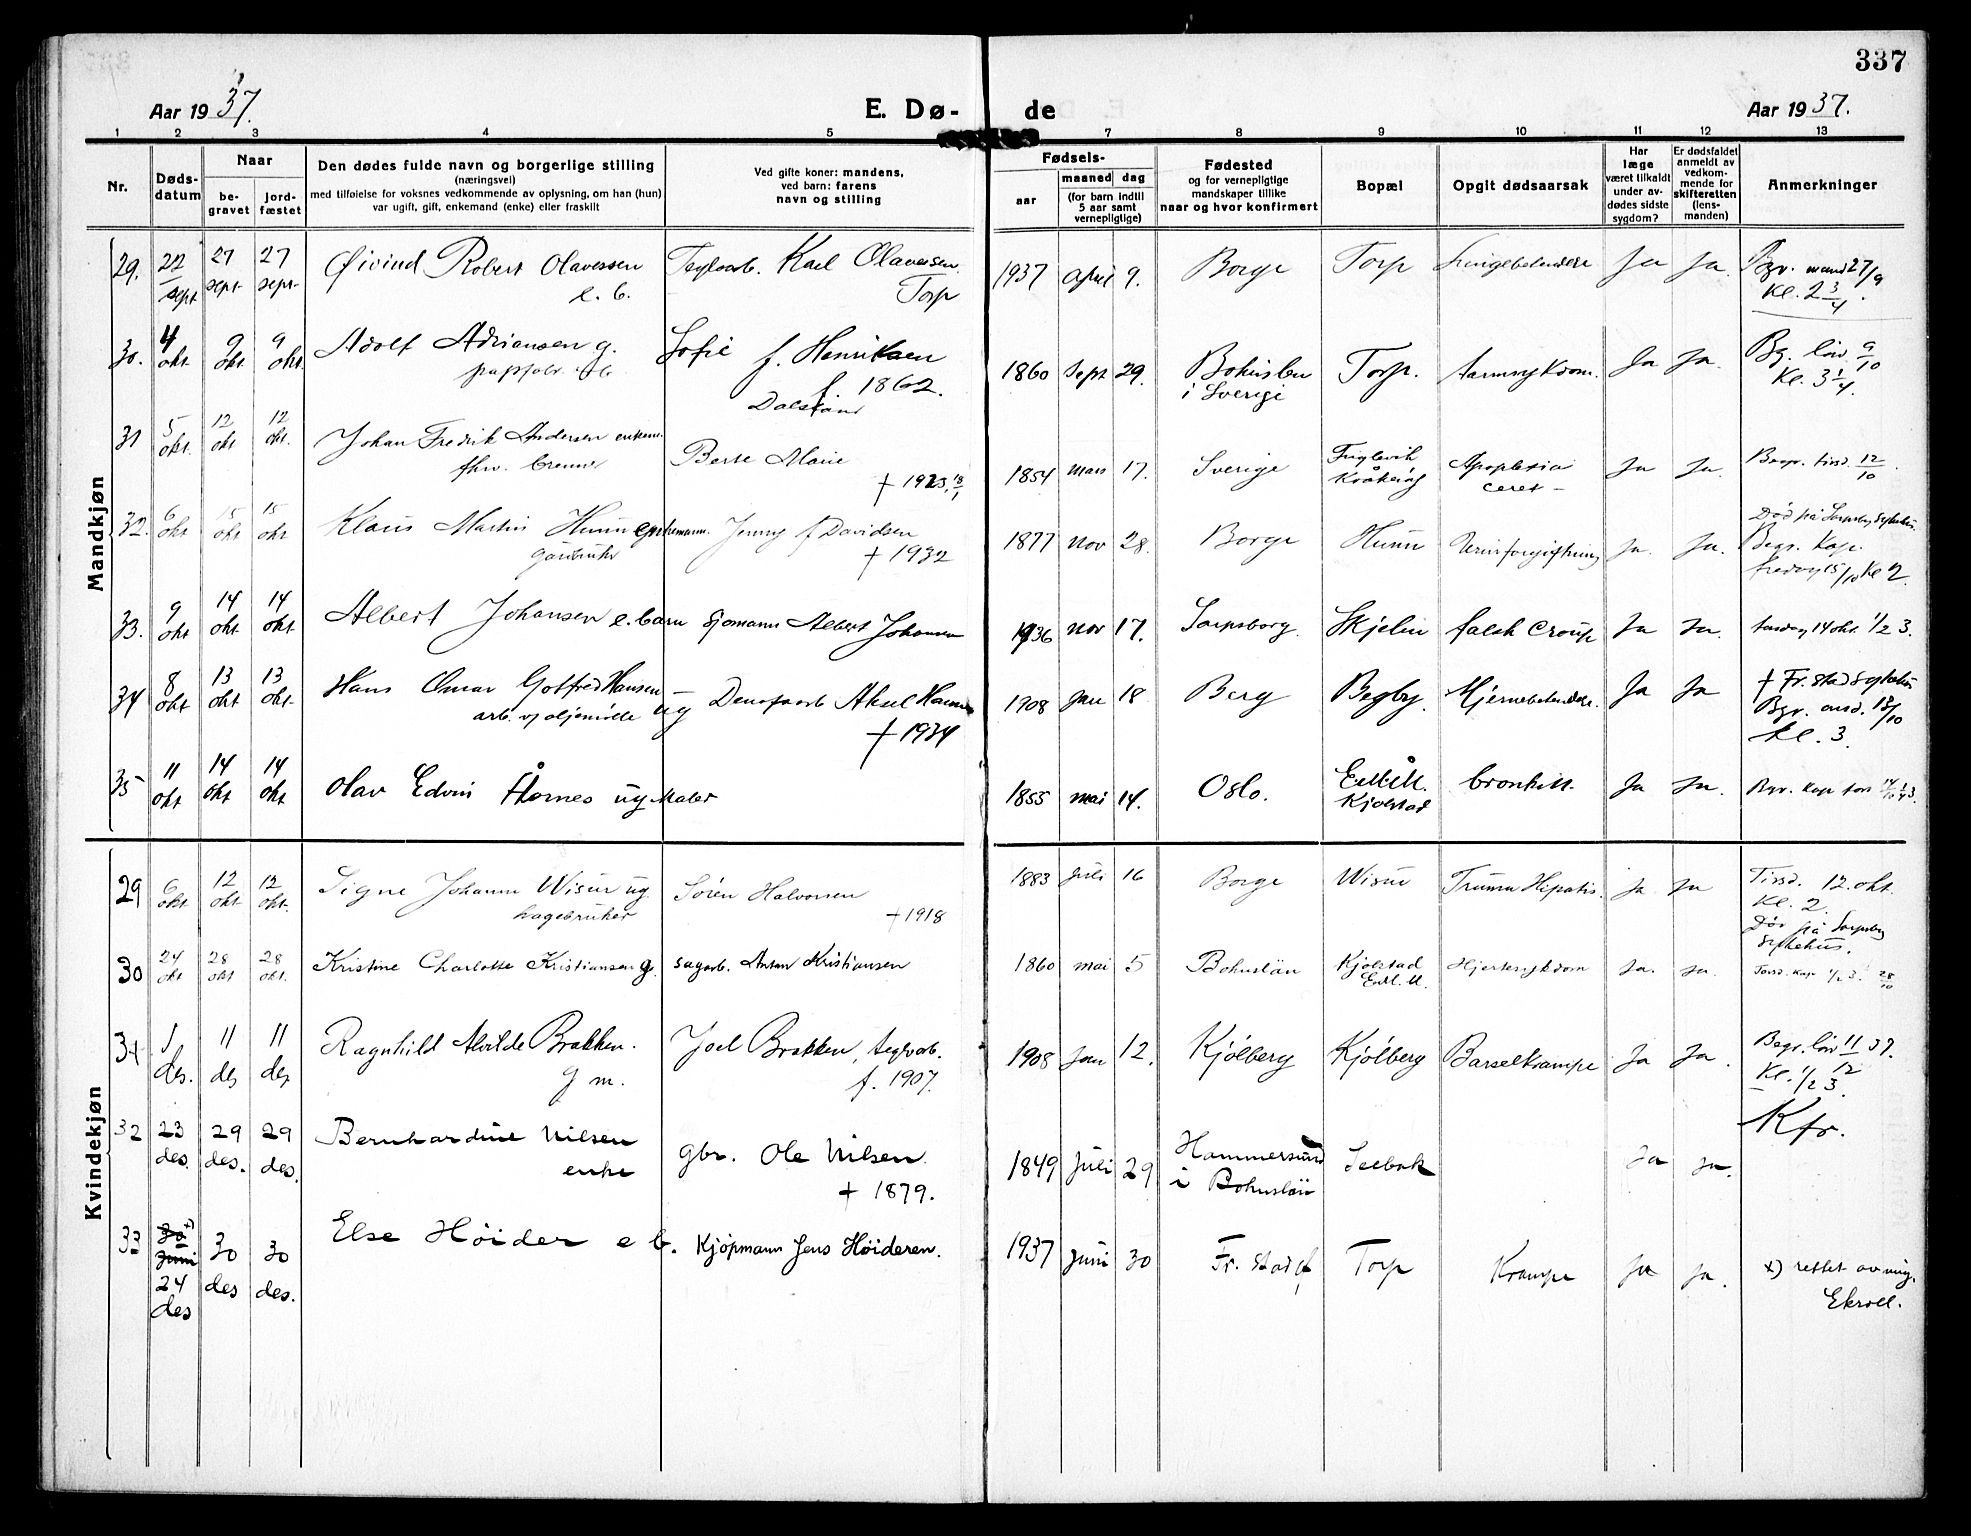 337
Aar 1937.
E. Dø- de
Aar 1937.
1 2 3 4 5 7 8 9 10 11 12 13
Nr.
Døds-
datum
Naar
be-
gravet
jord-
fæstet
Den dødes fulde navn og borgerlige stilling
(næringsvei)
med tilføielse for voksnes vedkommende av oplysning, om han (hun)
var ugift, gift, enkemand (enke) eller fraskilt
Ved gifte koner: mandens,
ved barn: farens
navn og stilling
Fødsels-
aar
maaned dag
(for barn indtil
5 aar samt
vernepligtige)
Fødested
og for vernepligtige
mandskaper tillike
naar og hvor konfirmert
Bopæl
Opgit dødsaarsak
Har
læge
været tilkaldt
under av-
dødes sidste
sygdom?
Er dødsfaldet
anmeldt av
vedkom-
mende for
skifteretten
(lens-
manden)
Anmerkninger
Mandkjøn
29. 22 27 27 Øivind Robert Olavessen Teglarb. Karl Olavesen 1937 April 9. Borge Torp Lungebetendelse Ja Ja. Bgr. mand 27/9
sept sept. sept. e. b. Torp Kl. 2 3/4.
30. 4 9 9 Adolf Adriansen g. Sofie f. Henriksen 1860 Sept 29. Bohuslen Torp. tarmsykdom. Ja Ja. Bg. lør. 9/10
okt okt. okt. papfabr. arb f. 1862. i Sverige Kl. 3 1/4
Dalsland
31 5 12 12 Johan Fredrik Andersen enkem. Berte Marie 1854 mars 17. Sverige Fuglevik Apoplexia Ja Ja. Begr. tirsd. 12/10.
okt. okt okt. fhv. brenner † 1923. 18/1 Kråkerøy ceret-
32. 6 15 15 Klaus Martin Hunn enkemann. Jenny f Davidsen 1877 nov 28. Borge Hunn Urinforgiftning Ja. Ja. Død på Sarpsborg Sykehus.
okt okt okt gårdbruker † 1932 Begr. Kap.
fredag 15/10 Kl 2.
33. 9 14 14 Albert Johansen e. barn Sjømann Albert Johansen 1936 nov 17. Sarpsborg. Skjelin falsk Croup Ja Ja. torsdag 14 okt. 1/2 3.
okt okt okt.
34 8 13 13 Hans Omar Gotfred Hansen — Denofaarb Aksel Hansen 1908 Jan 18 Berg Begby. Hjernebetendelse. Ja Ja † Fr.stad Sykehus
okt okt okt. arb. v/ oljemølle ug † 1934 Bgr. onsd. 13/10
Kl. 3.
35 11 14 14 Olav Edvin Aarnes ug Maler 1855 mai 14. Oslo. E.M.M. bronkitt. Ja Ja. Bgr. Kap tors 14/10 1/4 3.
okt okt okt Kjølstad
Kvindekjøn
29 6 12 12 Signe Johanne Wisur ug. Søren Halvorsen 1883 Juli 16 Borge Wisur Trumn Hepatis. Ja Ja Tirsd. 12. okt.
okt okt okt. hagebruker † 1918 Kl. 2.
Død på Sarpsborg
Sykehus.
30 24 28 28 Kristine Charlotte Kristiansen g. sagarb. Anton Kristiansen 1860 mai 5 Bohuslän Kjølstad Hjertesykdom Ja. Ja. Torsd. Kap 1/2 3. 28/10
okt okt okt. E.M.M.
31 1 11 11 Ragnhild Alvilde Brekken. Joel Brekken, teglarb. 1908 Jan 12. Kjølberg Kjølberg Barselkrampe Ja Ja. Begr. lør 11/12 37.
des. des des g m. f. 1907. Kl. 1/2 3.
Kfr.
32 23 29 29 Bernhardine Nilsen gbr. Ole Nilsen. 1849 Juli 29 Hammersund Seebak Ja Ja.
des. des. des. enke † 1879. i Bohuslän
33 30 x) 30 30 Else Høider e b. Kjøpmann Jens Høideren. 1937 Juni 30 Fr. Stad Torp Krampe Ja Ja. x) rettet av mig.
Juni des des. Ekroll.
24
des